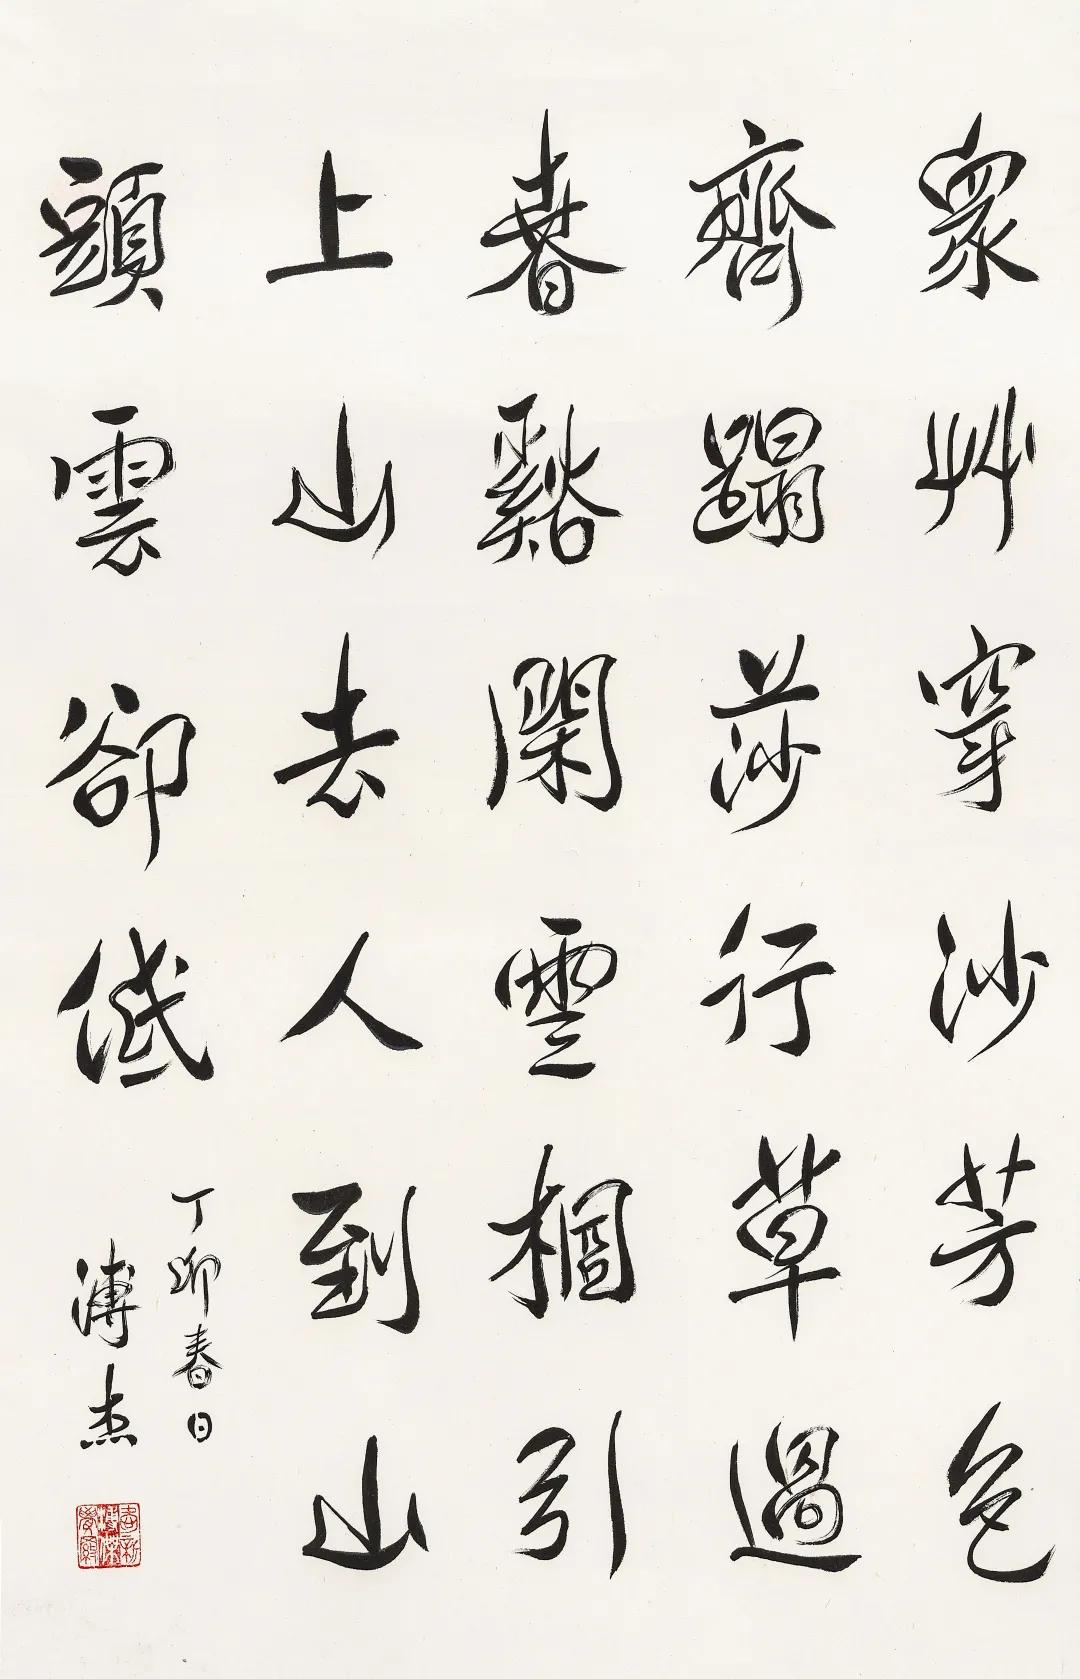 眾艸穿沙芳色
齊蹋莎行草過
春谿閑雲相引
上山去人到山
頭雲卻低
丁卯春日
溥杰